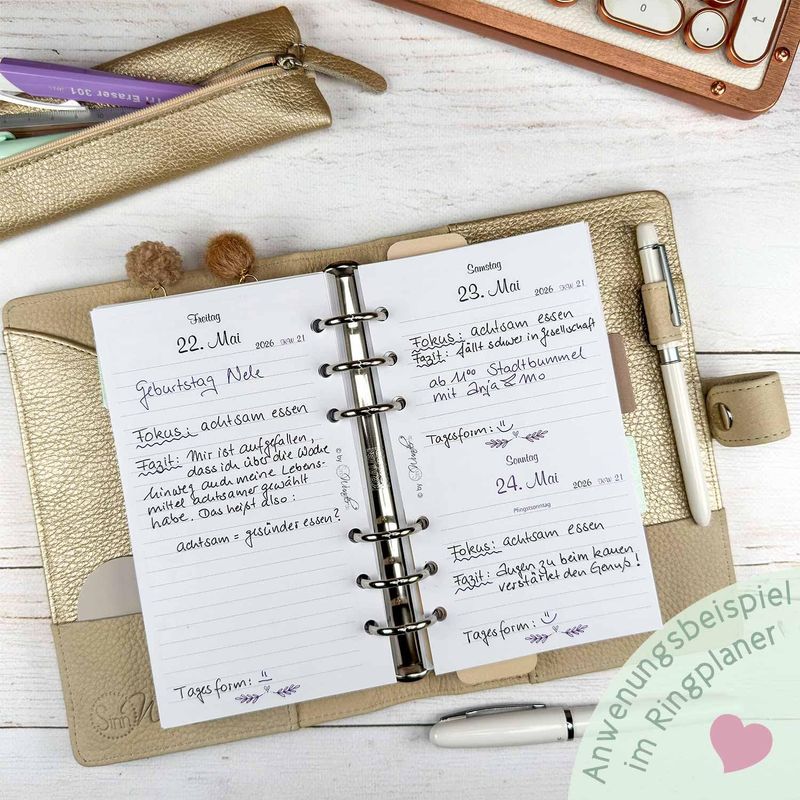 Tri Eraser 301
0
Freitag
22. Mai
2026 KW 21
Geburtstag Nele
Fokus: achtsam essen
Fazit: Mir ist aufgefallen,
dass ich über die Woche
hinweg auch meine Lebens-
mittel achtsamer gewählt
habe. Das heißt also:
achtsam = gesünder essen?
Tagesform:
© by
Samstag
23. Mai
2026 KW 21
Fokus: achtsam essen
Fazit: fällt schwer in gesellschaft
ab 11⁰⁰ Stadtbummel
mit Anja & Mo
Tagesform:
© by
Sonntag
24. Mai
2026 KW 21
Pfingstsonntag
Fokus: achtsam essen
Fazit: Augen zu beim kauen
verstärkt den Genuß!
Tagesform:
Sinn
Anwenungsbeispiel
im Ringplaner